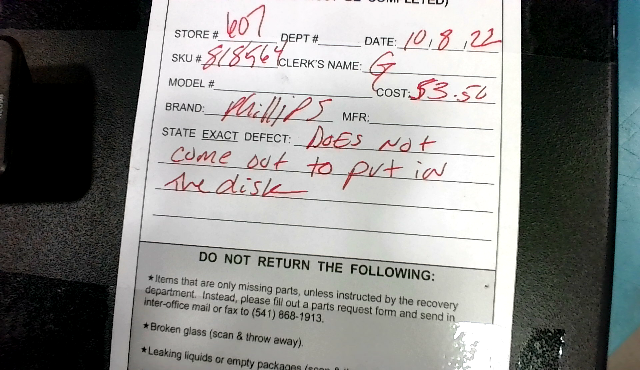 BE COMPLETED)
STORE # 607 DEPT # DATE: 10, 8, 22
SKU # 818564 CLERK'S NAME: G
MODEL # COST: 53.50
BRAND: Phillips MFR:
STATE EXACT DEFECT: DoEs Not
come out to put in
the disk
DO NOT RETURN THE FOLLOWING:
★Items that are only missing parts, unless instructed by the recovery
department. Instead, please fill out a parts request form and send in
inter-office mail or fax to (541) 868-1913.
★Broken glass (scan & throw away).
★Leaking liquids or empty packages (scan &